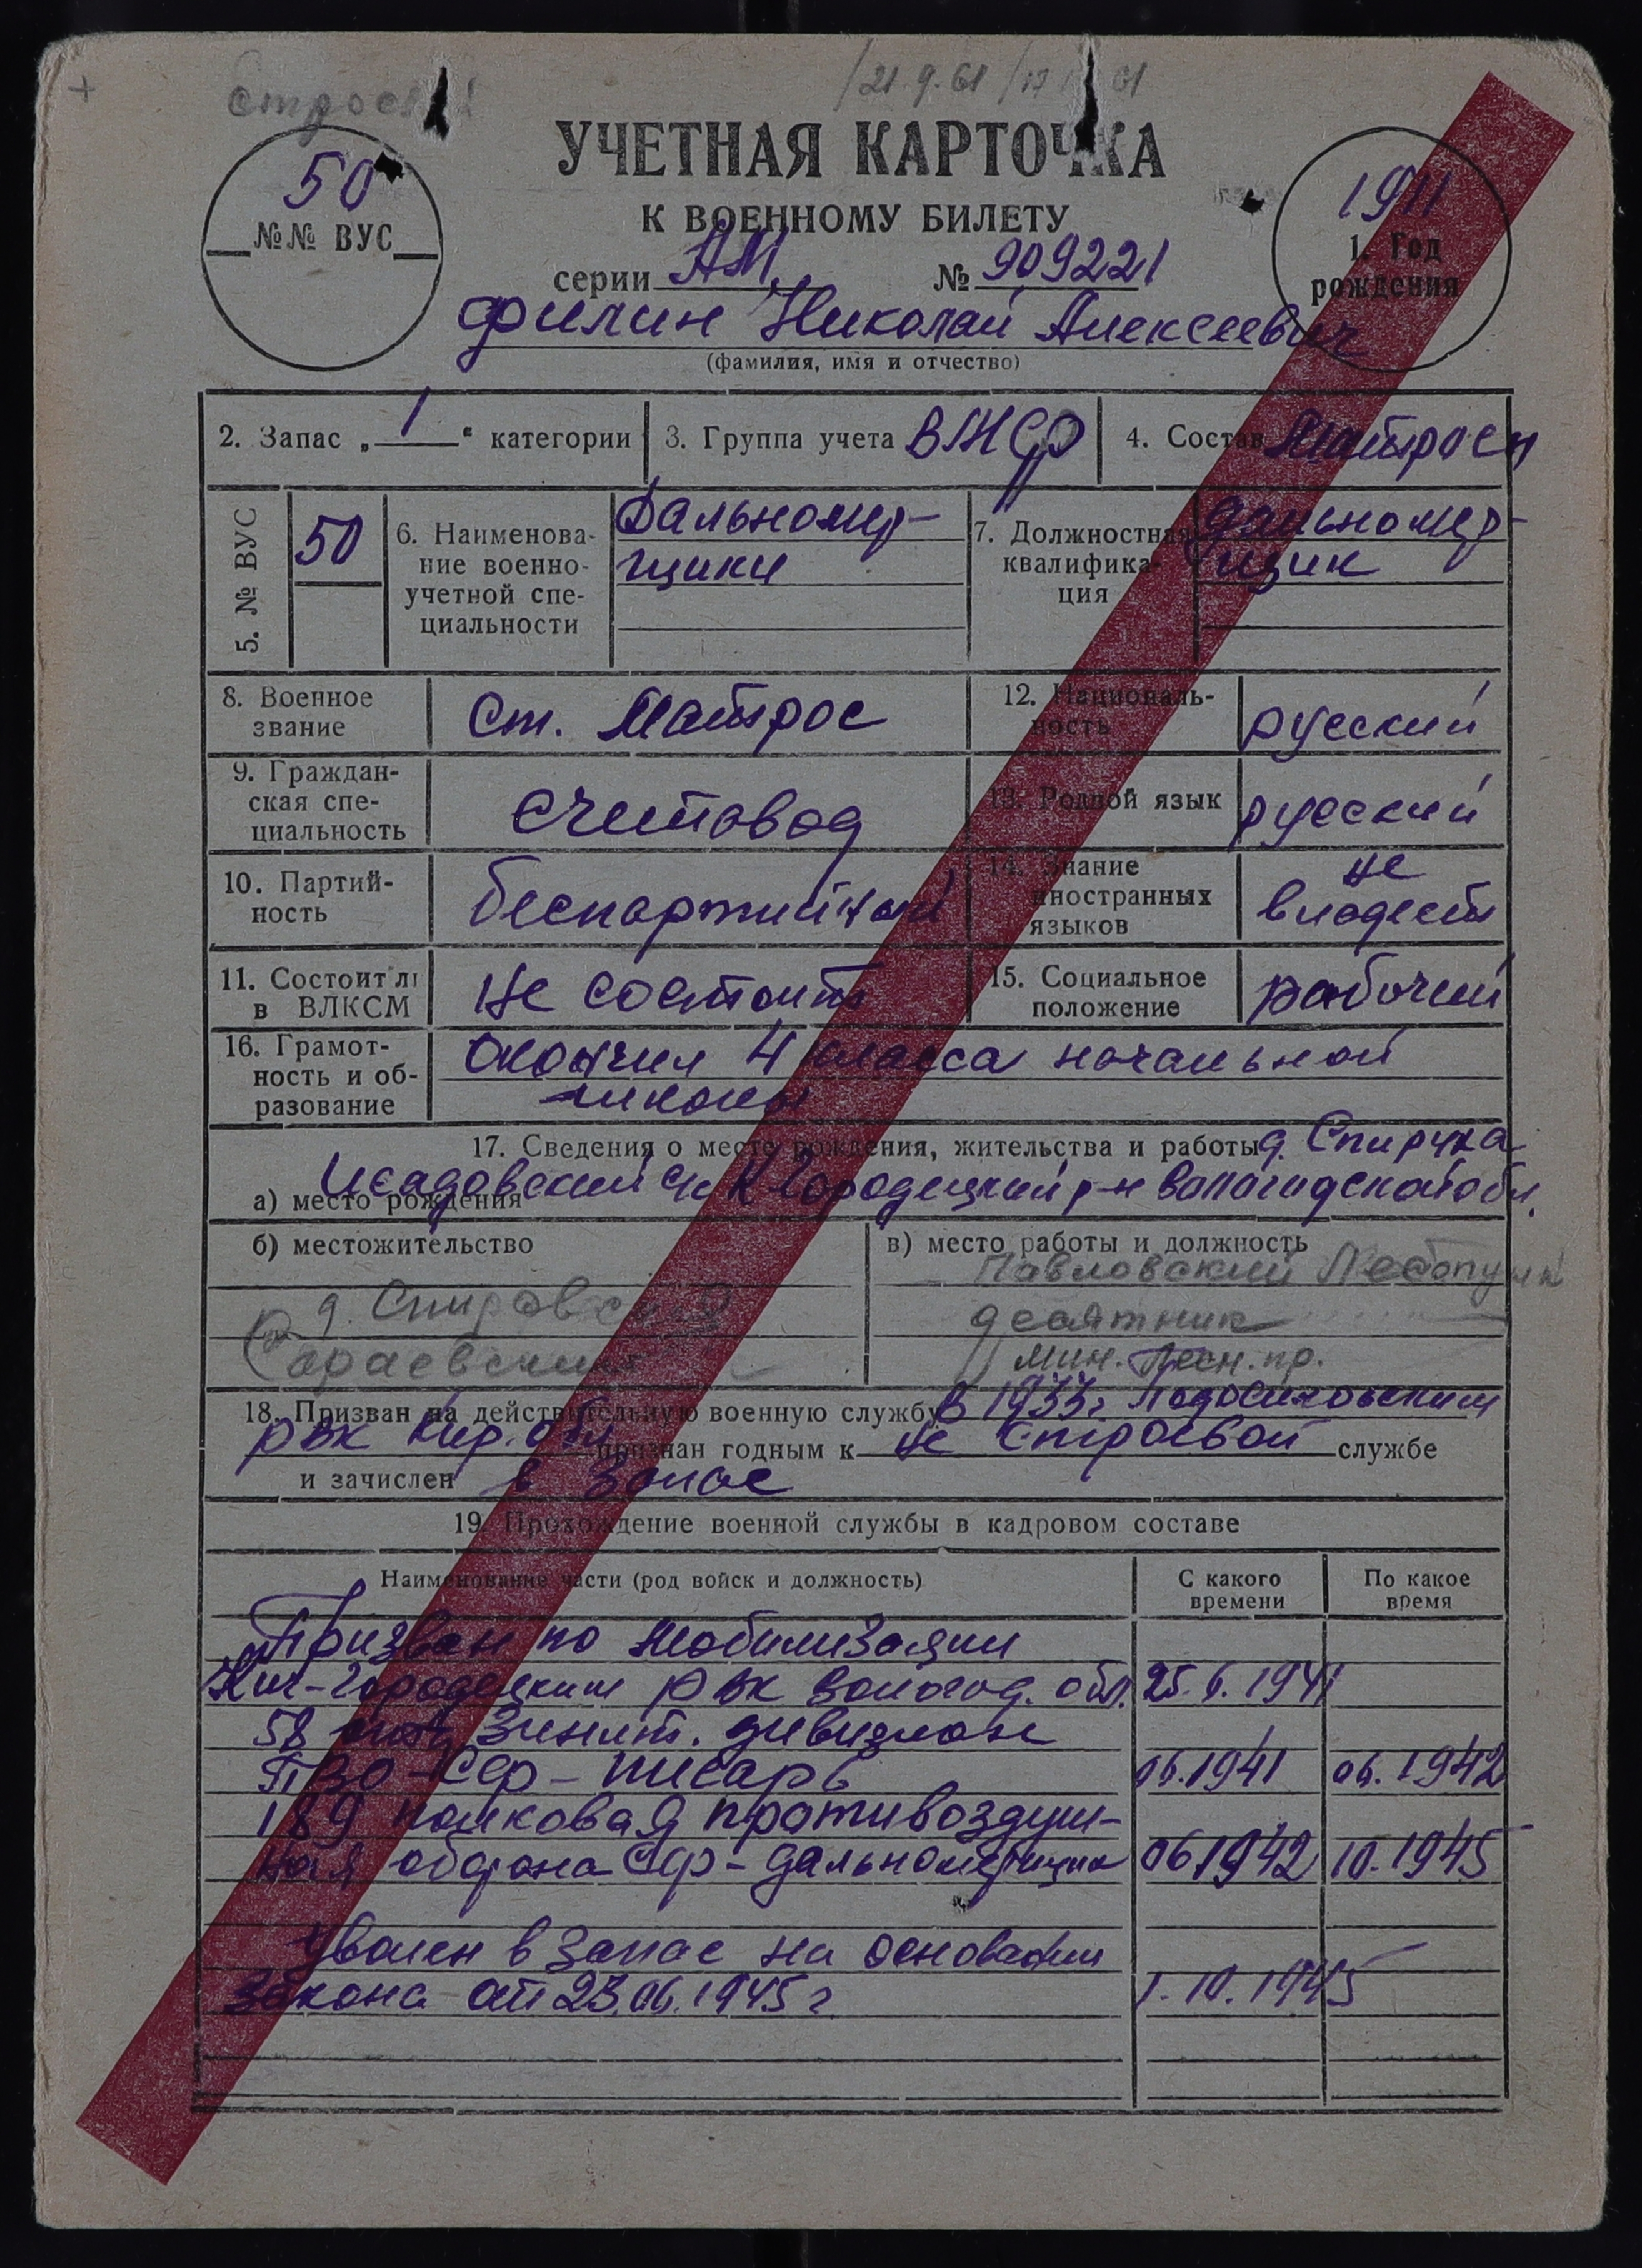 строевой
21.9.61
УЧЕТНАЯ КАРТОЧКА
К ВОЕННОМУ БИЛЕТУ
50
№№ ВУС
1911
1. Год рождения
серии АМ № 909221
Филин Николай Алексеевич
(фамилия, имя и отчество)
2. Запас „1“ категории
3. Группа учета ВМСФ
4. Состав Матросы
5. № ВУС 50
6. Наименование военно-учетной специальности Дальномер-
щики
7. Должностная квалификация дальномер-
щик
8. Военное звание Ст. Матрос
12. Националь-ность русский
9. Граждан-ская спе-циальность счетовод
13. Родной язык русский
10. Партий-ность беспартийный
14. Знание иностранных языков не владеет
11. Состоит ли в ВЛКСМ не состоит
15. Социальное положение рабочий
16. Грамот-ность и об-разование Окончил 4 класса начальной
школы
17. Сведения о месте рождения, жительства и работы д. Спирука
а) место рождения Исадовский с/с К Городецкий р-н Вологодской обл.
б) местожительство
д. Спировская
Сараевский
в) место работы и должность
Павловский Лесопункт
десятник
Мин. Лесн. пр.
18. Призван на действительную военную службу в 1933г Подосиновским
РВК Кир. обл признан годным к не строевой службе
и зачислен в запас
19. Прохождение военной службы в кадровом составе
Наименование части (род войск и должность)
С какого времени
По какое время
Призван по мобилизации
Кич-Городецким РВК Вологод. обл. 25.6.1941
58 зенит. дивизион
ПВО - СФ - писарь 06.1941 06.1942
189 полковая противовоздуш-
ная оборона СФ - дальномерщик 06.1942 10.1945
Уволен в запас на основании
закона от 23.06.1945 г. 1.10.1945